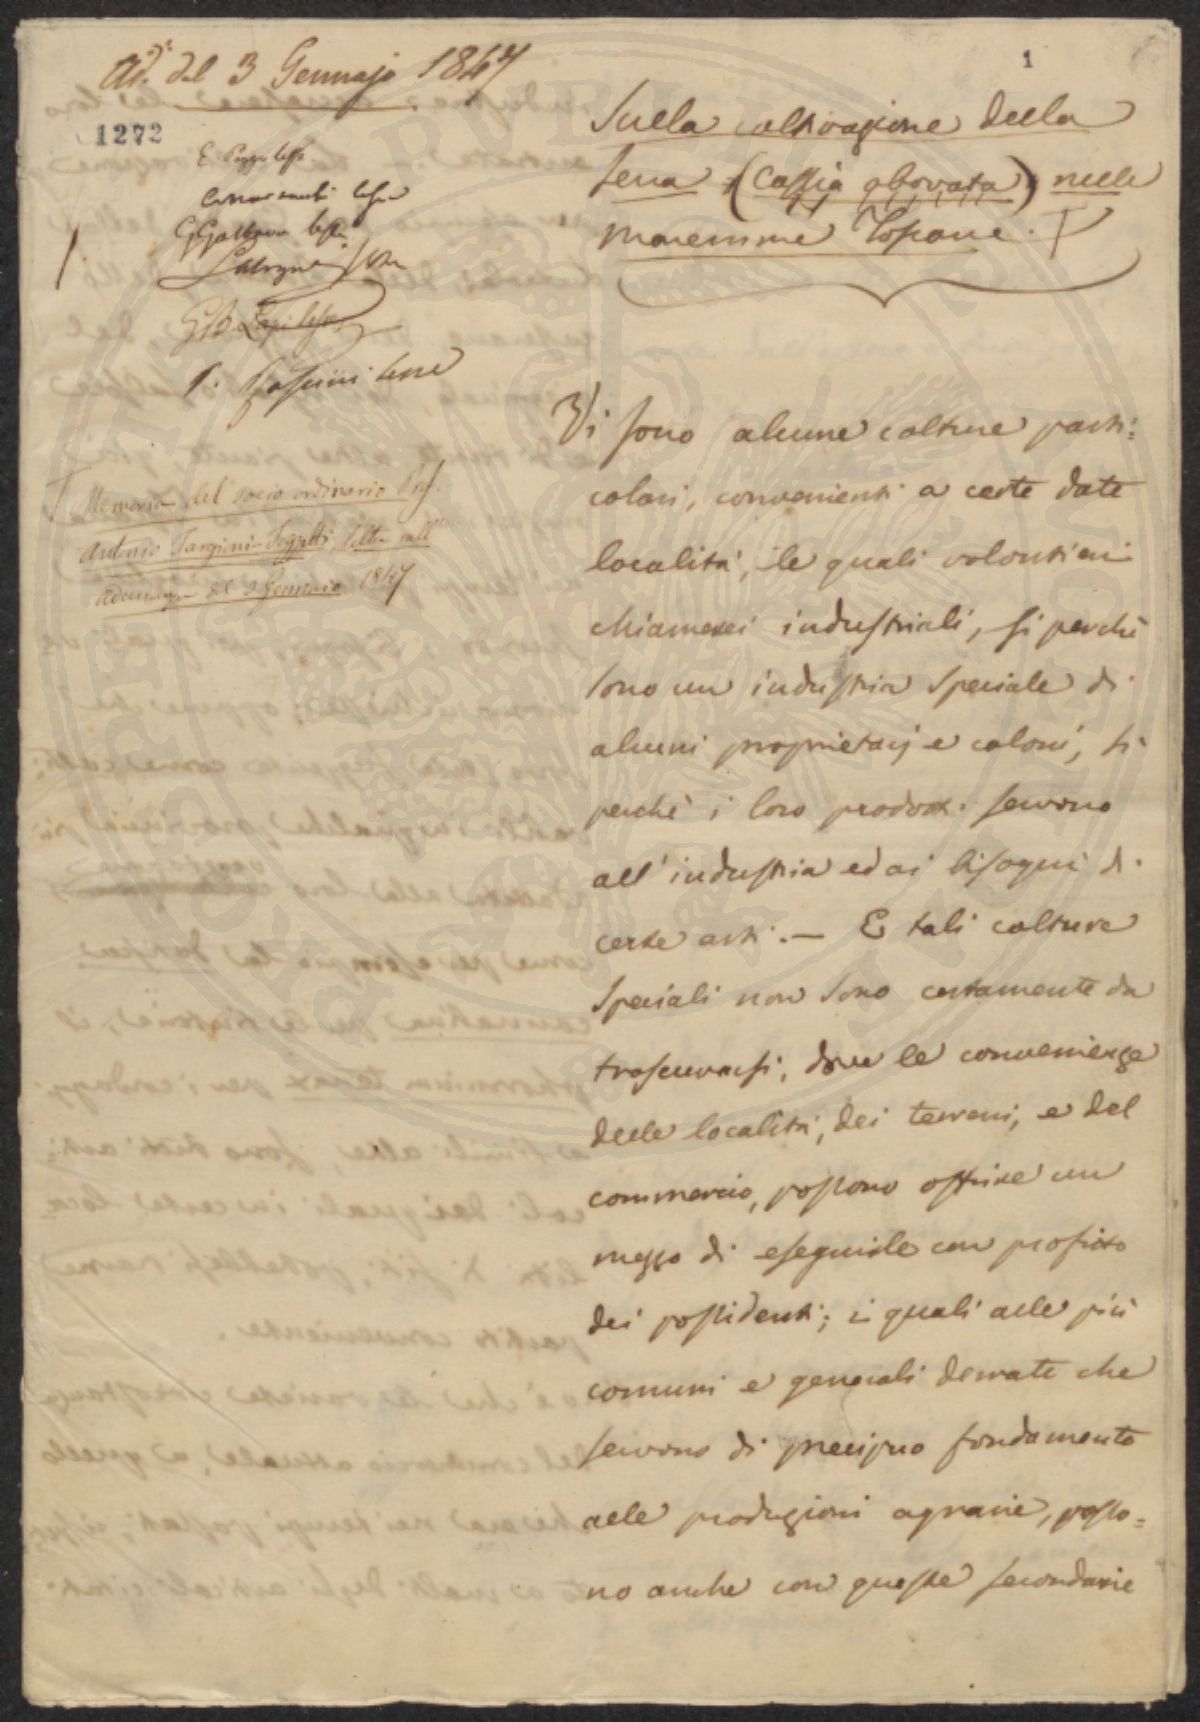 Ad.ᶻᵃ del 3 Gennajo 1847
1
1272
E. Poggi lesse
lesse
lesse
lesse
G B Lapi lesse
lesse
Memoria del socio ordinario Prof.
Antonio Targioni-Tozzetti, letta nell'
Adunanza del 3 Gennaio 1847
Sulla coltivazione della
Sena (Cassia obovata) nelle
maremme Toscane.
Vi sono alcune colture parti:
colari, convenienti a certe date
località, le quali volontieri
chiamerei industriali, sì perchè
sono un industria speciale di
alcuni proprietarj e coloni, sì
perchè i loro prodotti servono
all'industria ed ai bisogni di
certe arti. — E tali colture
speciali non sono certamente da
trascurarsi, dove le convenienze
delle località, dei terreni, e del
commercio, possono offrire un
mezzo di eseguirle con profitto
dei possidenti; i quali alle più
comuni e generali derrate che
servono di precipuo fondamento
alle produzioni agrarie, posso=
no anche con queste secondarie